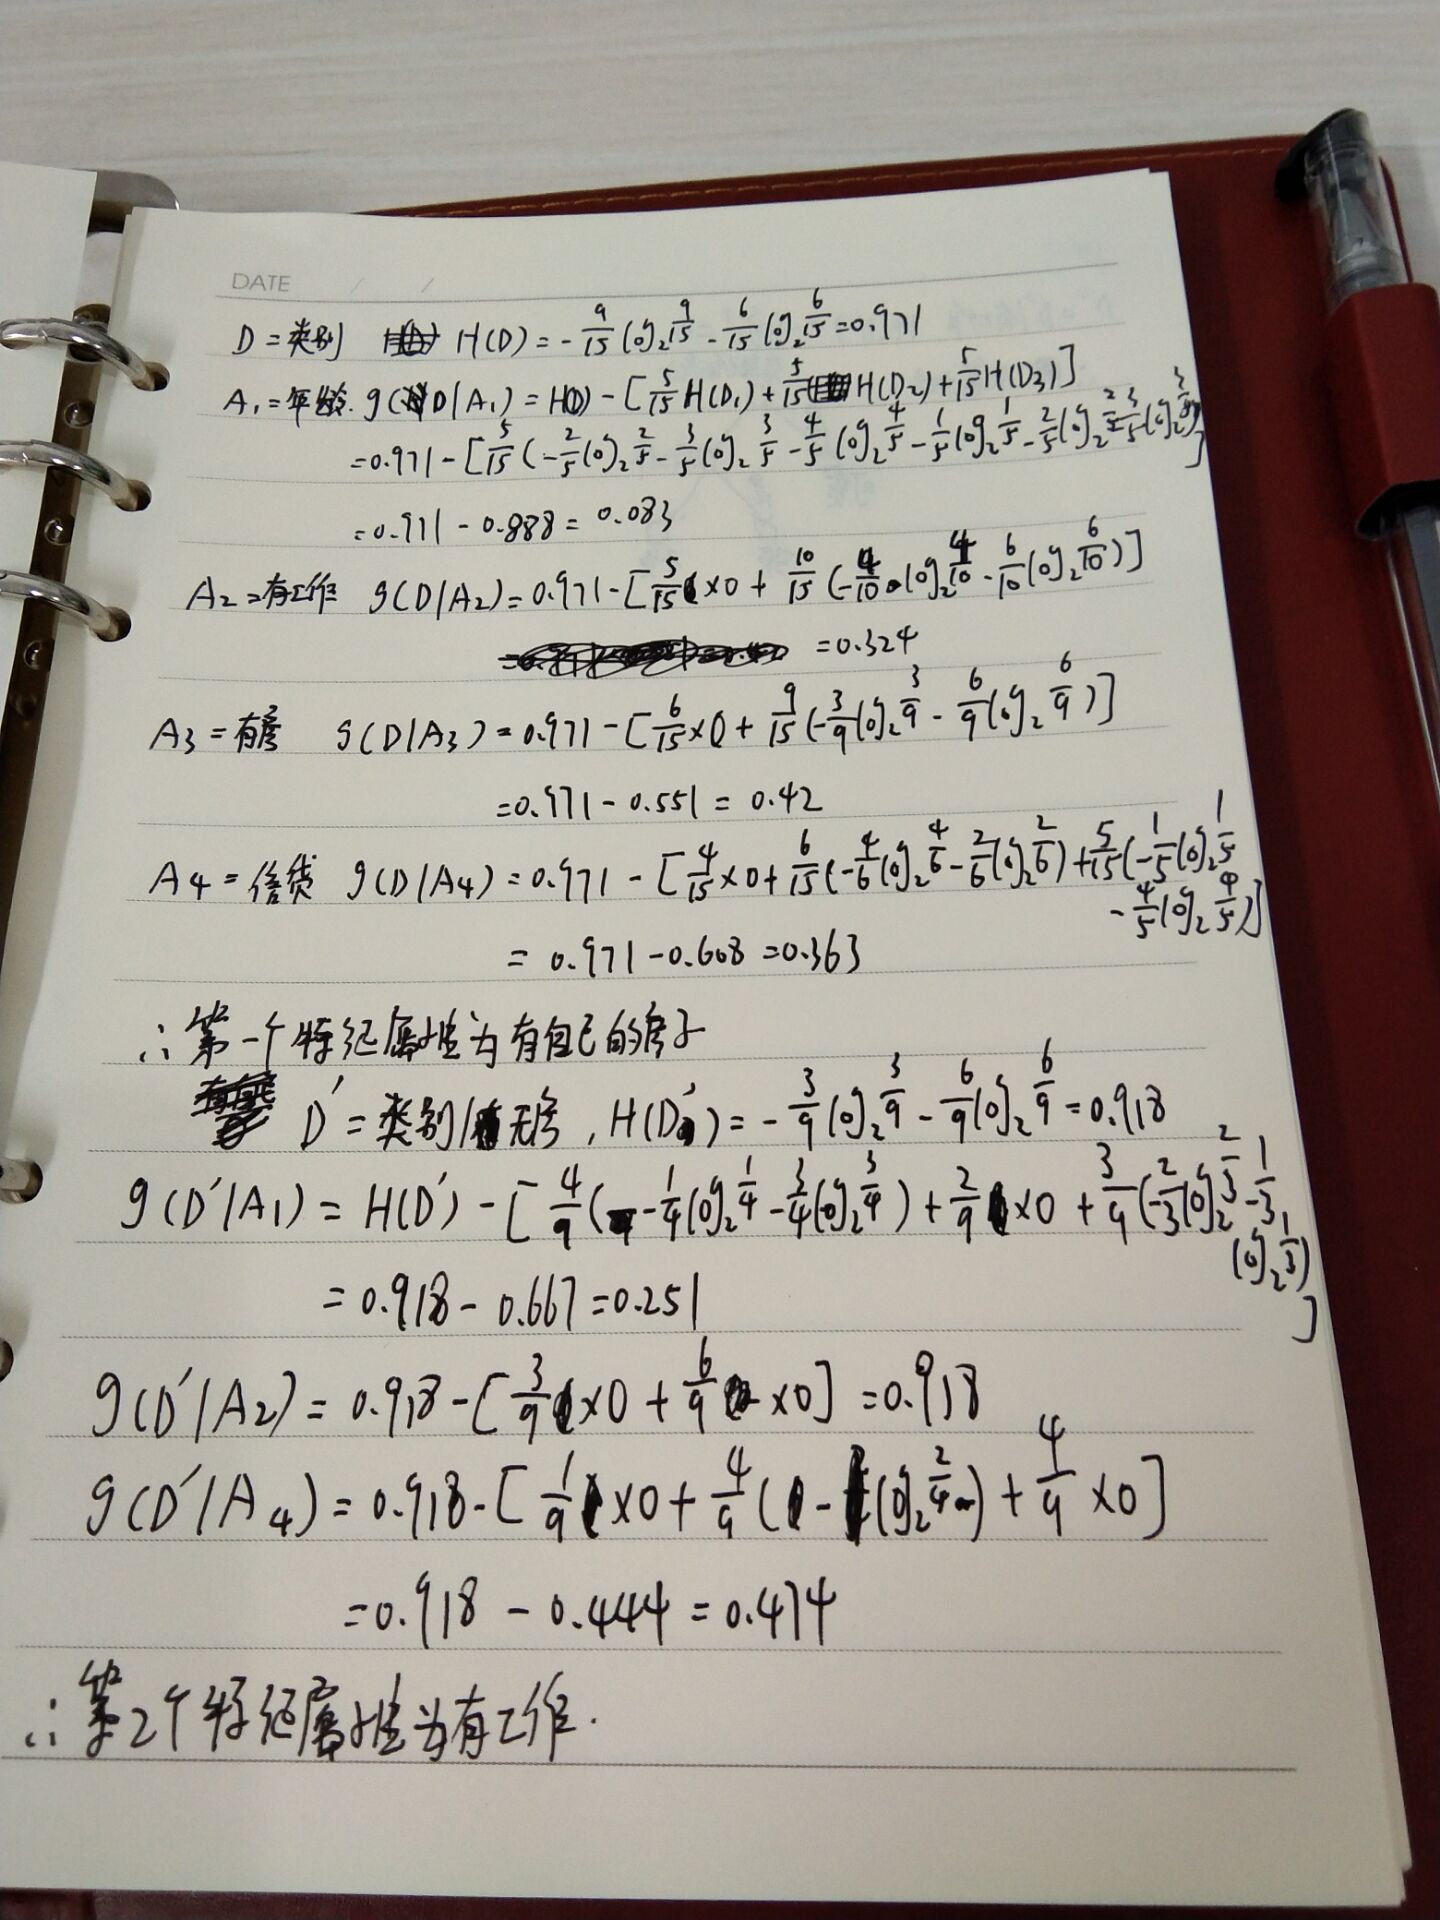 DATE / /
D = 类别 H(D) = - 9/15 log₂ 9/15 - 6/15 log₂ 6/15 = 0.971
A₁ = 年龄. g(D|A₁) = H(D) - [5/15 H(D₁) + 5/15 H(D₂) + 5/15 H(D₃)]
= 0.971 - [5/15 (- 2/5 log₂ 2/5 - 3/5 log₂ 3/5 - 4/5 log₂ 4/5 - 1/5 log₂ 1/5 - 2/5 log₂ 2/5 - 3/5 log₂ 3/5)]
= 0.971 - 0.888 = 0.083
A₂ = 有工作 g(D|A₂) = 0.971 - [5/15 × 0 + 10/15 (- 4/10 log₂ 4/10 - 6/10 log₂ 6/10)]
= 0.324
A₃ = 有房 g(D|A₃) = 0.971 - [6/15 × 0 + 9/15 (- 3/9 log₂ 3/9 - 6/9 log₂ 6/9)]
= 0.971 - 0.551 = 0.42
A₄ = 信贷 g(D|A₄) = 0.971 - [4/15 × 0 + 6/15 (- 4/6 log₂ 4/6 - 2/6 log₂ 2/6) + 5/15 (- 1/5 log₂ 1/5
- 4/5 log₂ 4/5)]
= 0.971 - 0.608 = 0.363
∴ 第一个特征属性为有自己的房子
D' = 类别/无房, H(D') = - 3/9 log₂ 3/9 - 6/9 log₂ 6/9 = 0.918
g(D'|A₁) = H(D') - [4/9 (- 1/4 log₂ 1/4 - 3/4 log₂ 3/4) + 2/9 × 0 + 3/9 (- 2/3 log₂ 2/3 - 1/3
log₂ 1/3)
]
= 0.918 - 0.667 = 0.251
g(D'|A₂) = 0.918 - [3/9 × 0 + 6/9 × 0] = 0.918
g(D'|A₄) = 0.918 - [1/9 × 0 + 4/9 ( - log₂ 2/4) + 4/9 × 0]
= 0.918 - 0.444 = 0.474
∴ 第2个特征属性为有工作.